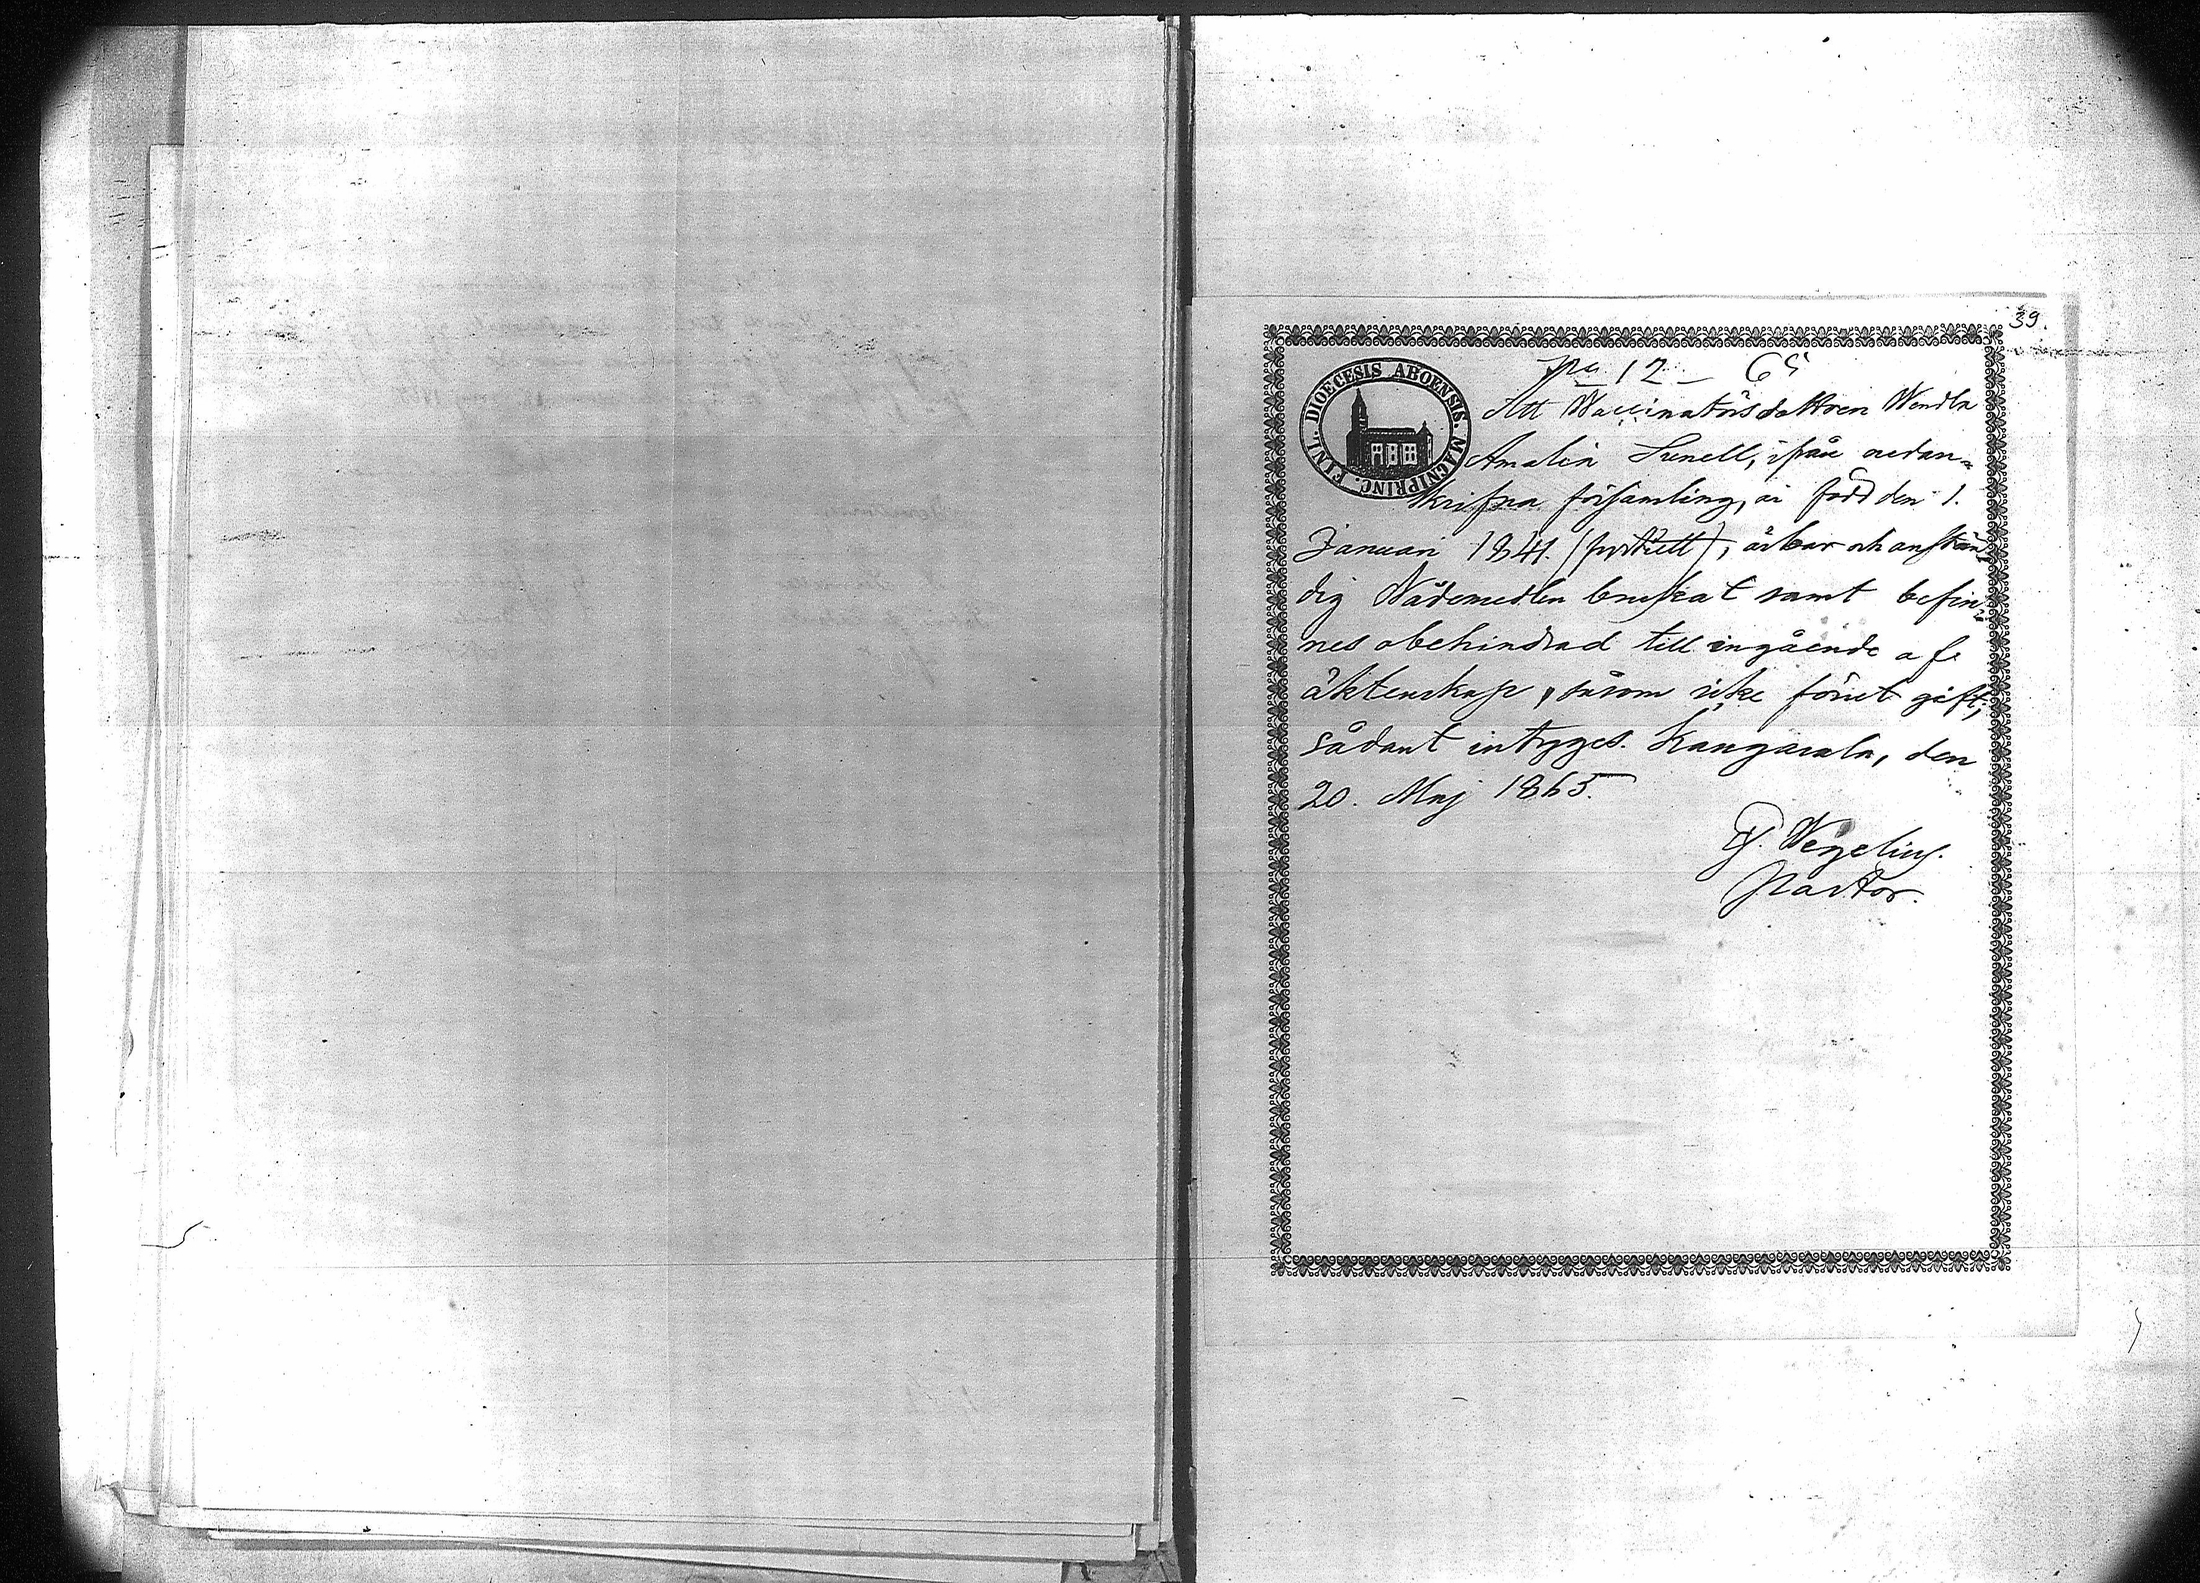 39.
No 12 - 65
DIOECESIS ABOENSIS. MAGNIPRINC. FINL.
Att Vaccinatörsdottren Wendla
Amalia Sunell, ifrån nedan-
skrifna församling, är född den 1.
Januari 1841. (fyrtioett), ärbar och anstän-
dig Nådemedlen brukat samt befin-
nes obehindrad till ingående af
äktenskap, såsom icke förut gift;
sådant intyges. Kangasala, den
20. Maj 1865.
Wegelius.
Pastor.